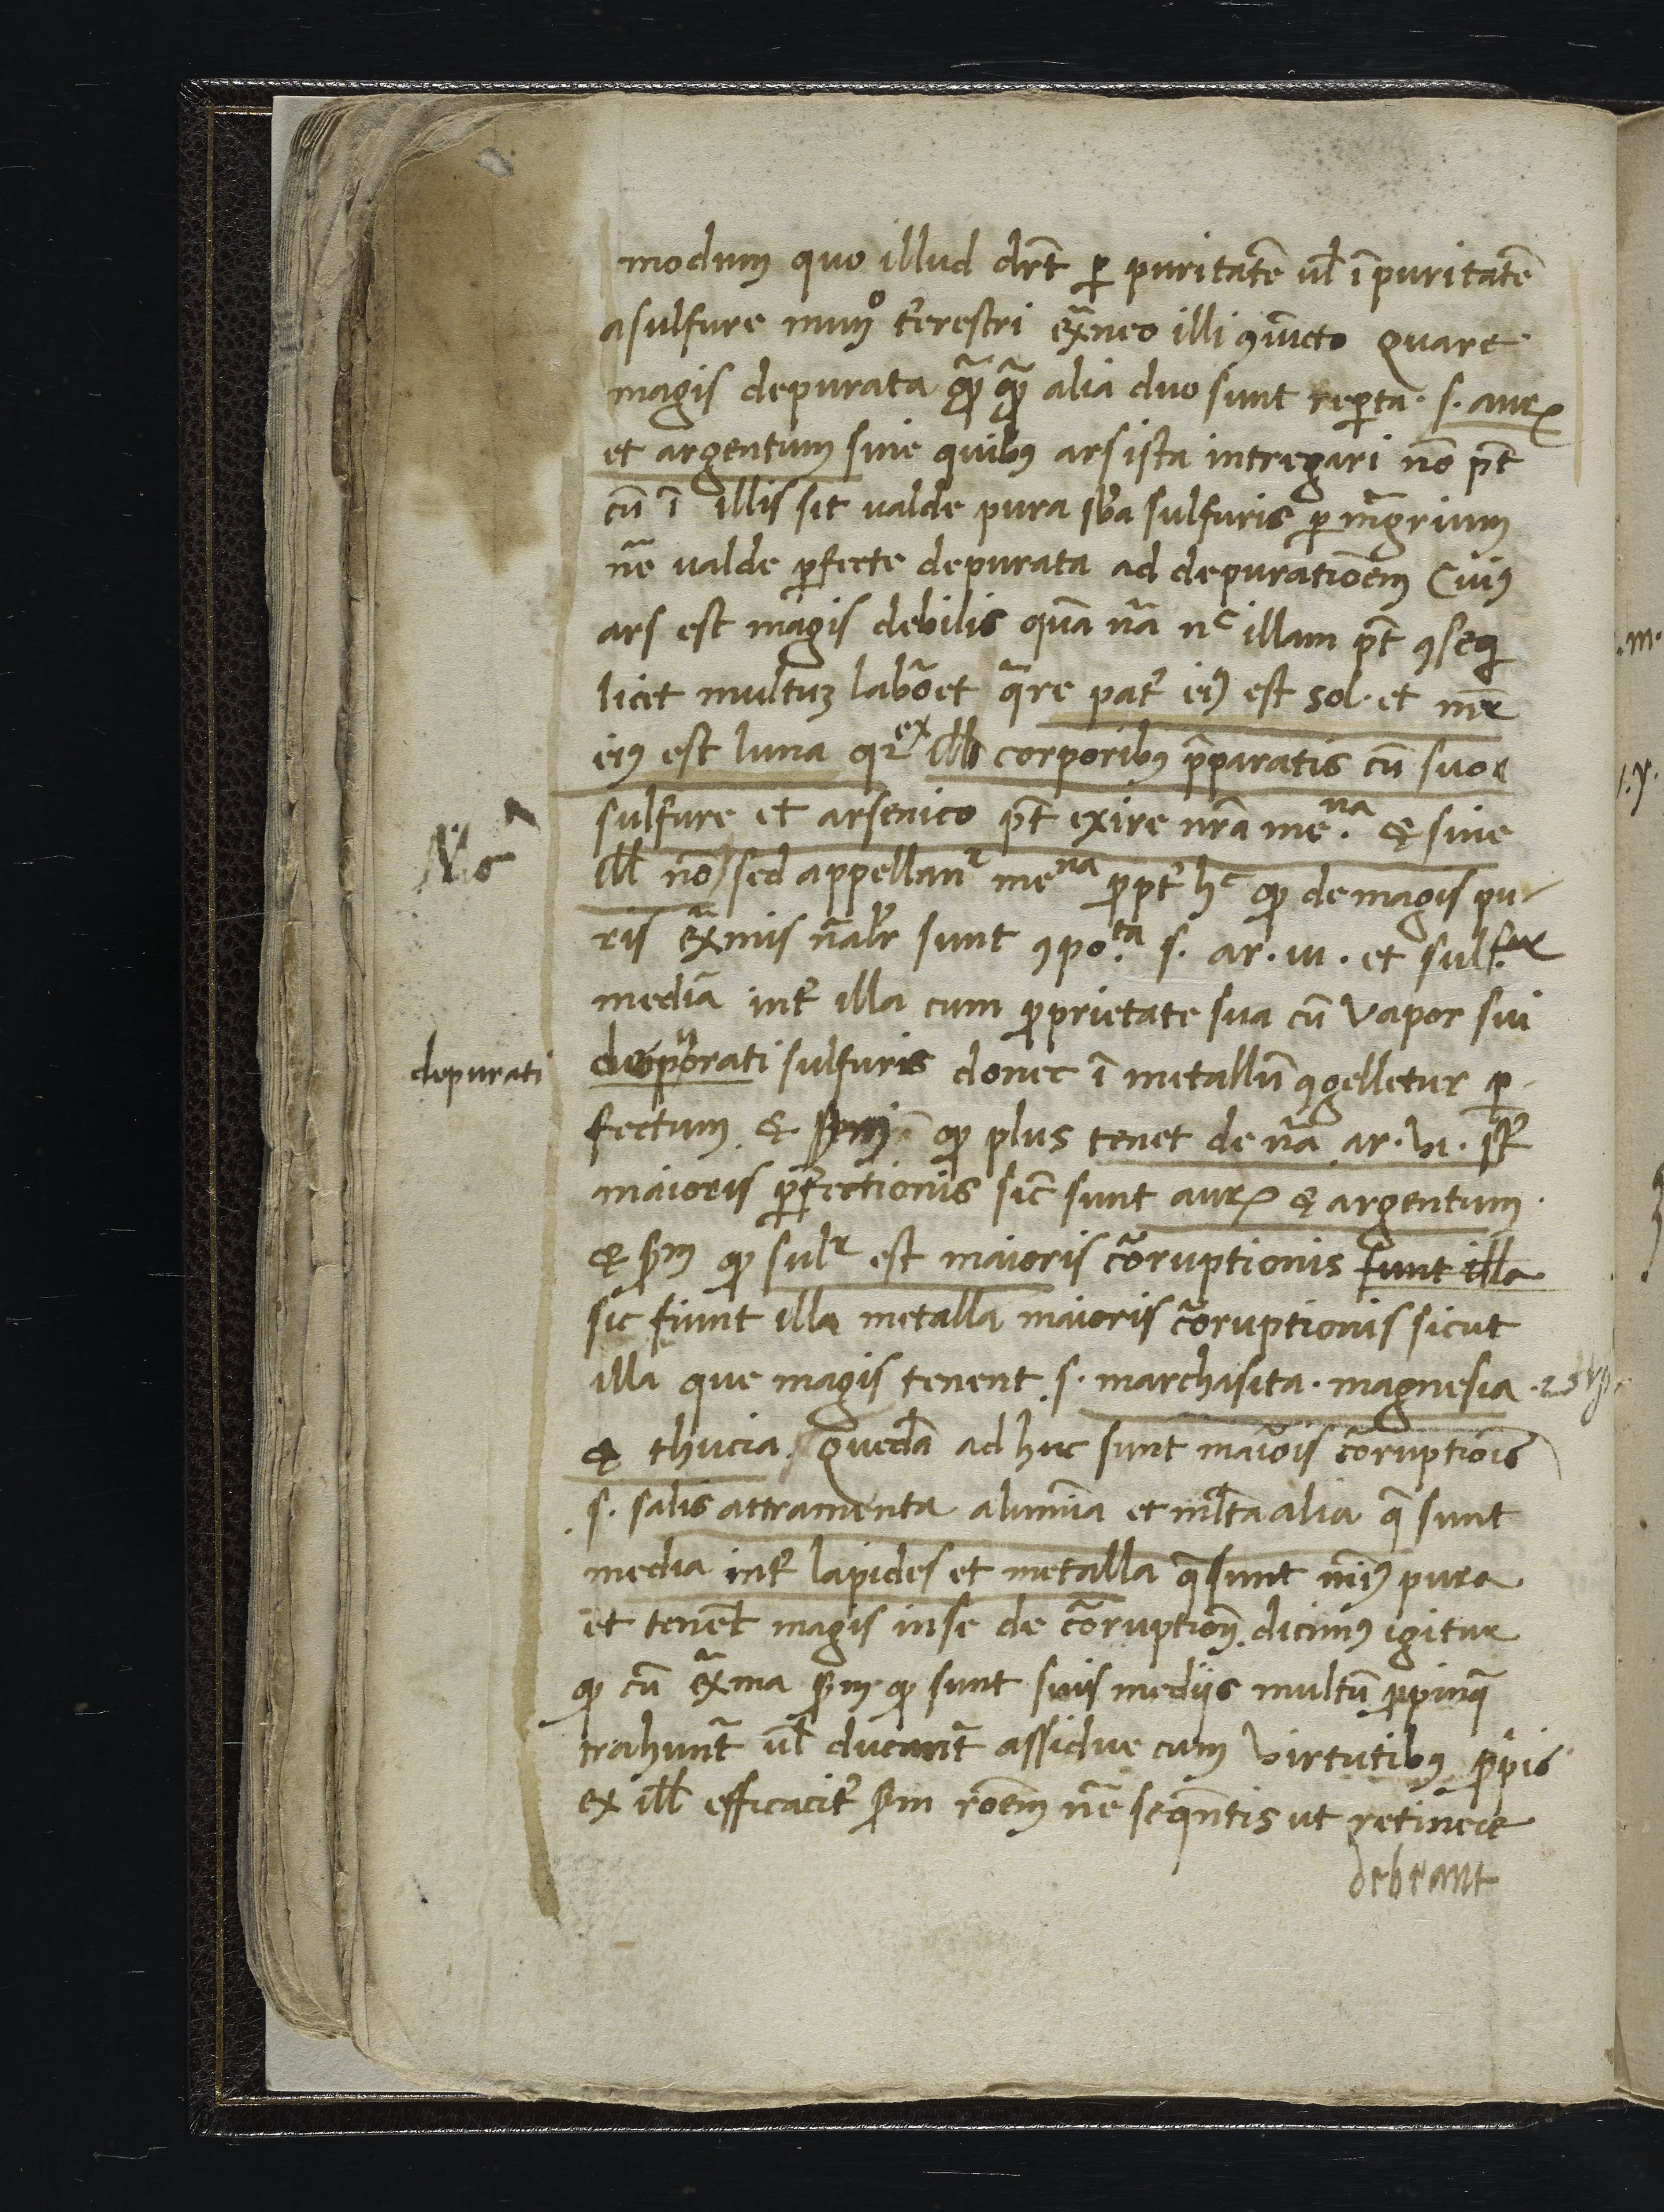 modum quo illud dr̃t ꝑ puritatẽ ul̃ ĩpuritatẽ
a sulfure mum̊ t̃erestri ex̃neo illi ꝯiũcto quare
magis depurata alia duo sunt reꝑta · s. auꝝ
et argentum sine quibꝰ ars ista intregari nõ pt̃
cũ ĩ illis sit valde pura sb̃a sulfuris ꝑ mãgrium
nẽ valde ꝑfecte depurata ad depurationẽm Cuiꝰ
ars est magis debilis quã nã nᶜ illam pt̃ ꝯseq̃
licet multuꝫ labõet q̃re pat̃ eiꝰ est sol · et mr̃
eiꝰ est luna qꝛ ex ill̃ corporibꝰ p̃paratis cũ suo
sulfure et arsenico pt̃ exire nr̃a meⁿᵃ. & sine
ill̃ nõ sed appellanᵗ meⁿᵃ ꝓpt̃ hᶜ ꝙ de magis pu-
ris ex̃mis nãlr̃ sunt ꝯpo.ᵗᵃ s. ar. ui. et sulf.ur
mediã int̃ illa cum ꝓprietate sua cũ vapor sui
depurati sulfuris donec ĩ metallũ ꝯgelletur ꝑ-
fectum & ꝙ plus tenet de nã ar. vi.
maioris ꝑfectionis sic̃ sunt auꝝ & argentum
& s̃m ꝙ sulʳ est maioris coruptionis sunt illa
sic fiunt illa metalla maioris coruptionis sicut
illa que magis tenent s. marchasita · magnesia
& thucia quedã ad huc sunt maiõis coruptiõis
s. salis attramenta aluminã et ml̃ta alia q̃ sunt
media int̃ lapides et metalla q̃ sunt miꝰ pura
et tenẽt magis in se de coruptioñ dicimꝰ igitur
ꝙ cũ ex̃ma s̃m ꝙ sunt suis mediis multũ ꝓpinq̃
trahunt̃ ul̃ ducant̃ assidue cum virtutibꝰ ꝓpis
ex ill̃ efficacit̃ s̃m rõem nẽ seq̃ntis ut retinere
debeant
No
depurati